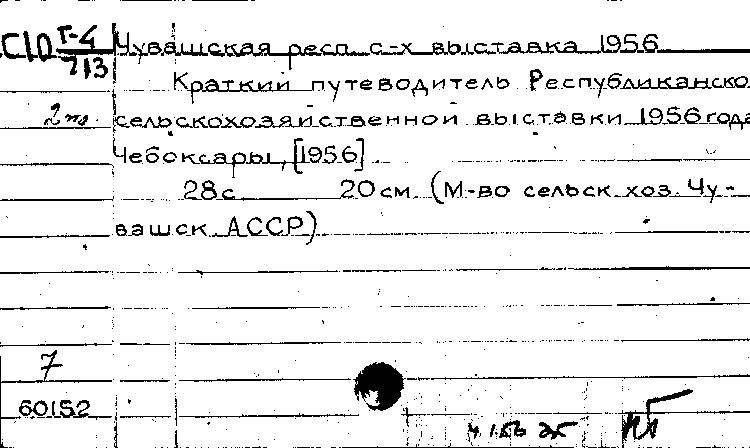 С10 Г-4
713
Чувашская респ. с-х выставка 1956
Краткий путеводитель Республиканско
2 пл. сельскохозяйственной выставки 1956 года
Чебоксары, [1956]
28с. 20см. (М-во сельск. хоз. Чу-
вашск. АССР).
7
60152